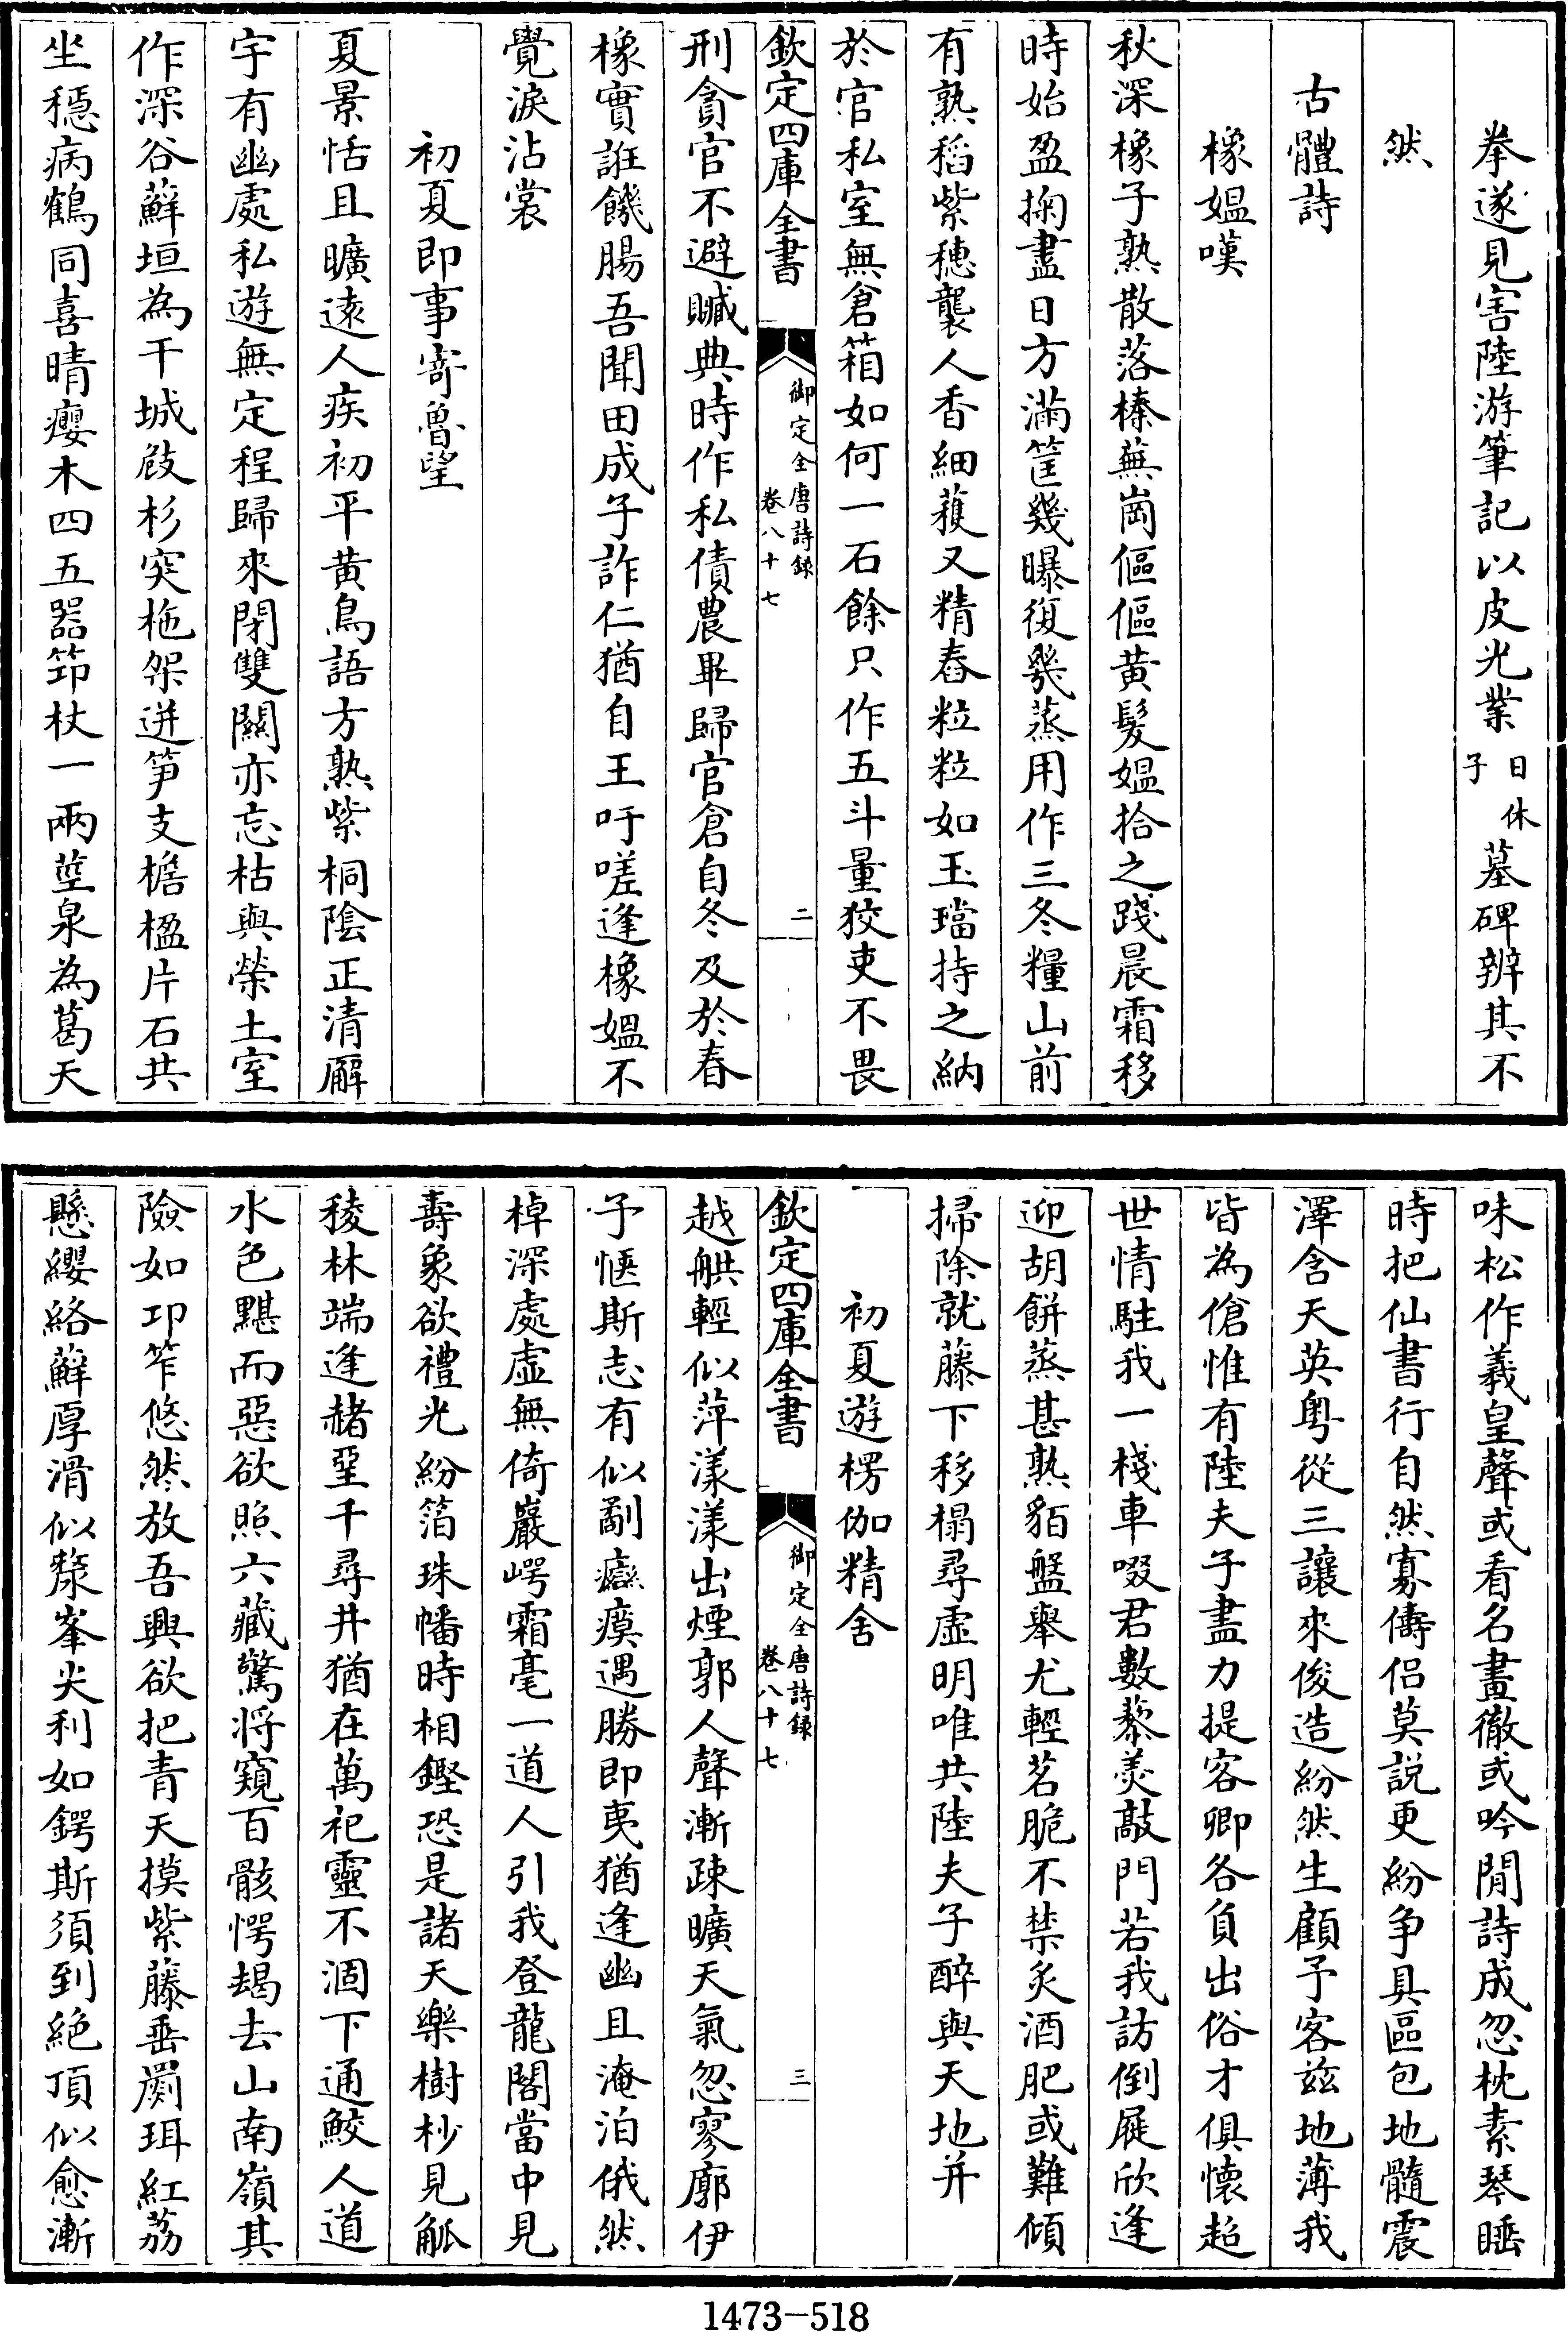 拳遂見害陸游筆記以皮光業日休子墓碑辨其不
然
古體詩
橡媼嘆
秋深橡子熟散落榛蕪崗傴傴黄髮媼拾之踐晨霜移
時始盈掬盡日方滿筐幾曝復幾蒸用作三冬糧山前
有熟稻紫穗襲人香細穫又精舂粒粒如玉璫持之納
於官私室無倉箱如何一石餘只作五斗量狡吏不畏
欽定四庫全書
御定全唐詩録
卷八十七
二
刑貪官不避贓典時作私債農畢歸官倉自冬及於春
橡實誑饑腸吾聞田成子詐仁猶自王吁嗟逢橡媼不
覺淚沾裳
初夏即事寄魯望
夏景恬且曠遠人疾初平黄鳥語方熟紫桐陰正清廨
宇有幽處私遊無定程歸來閉雙關亦忘枯與榮土室
作深谷蘚垣為干城㪇杉突杝架迸笋支檐楹片石共
坐穩病鶴同喜晴癭木四五器笻杖一兩莖泉為葛天
味松作羲皇聲或看名畫徹或吟閒詩成忽枕素琴睡
時把仙書行自然寡儔侣莫説更紛争具區包地髓震
澤含天英粤從三讓來俊造紛然生顧予客兹地薄我
皆為傖惟有陸夫子盡力提客卿各負出俗才俱懷超
世情駐我一棧車啜君數藜羮敲門若我訪倒屣欣逢
迎胡餅蒸甚熟貊盤舉尤輕茗脆不禁炙酒肥或難傾
掃除就藤下移榻尋虛明唯共陸夫子醉與天地并
初夏遊楞伽精舍
欽定四庫全書
御定全唐詩録
卷八十七
三
越艍輕似萍漾漾出煙郭人聲漸疎曠天氣忽寥廓伊
予愜斯志有似劀癮瘼遇勝即夷猶逢幽且淹泊俄然
棹深處虛無倚巖崿霜毫一道人引我登龍閣當中見
壽象欲禮光紛箔珠幡時相鏗恐是諸天樂樹杪見觚
稜林端逢赭堊千尋井猶在萬祀靈不涸下通鮫人道
水色黮而惡欲照六藏驚將窺百骸愕朅去山南嶺其
險如卭笮悠然放吾興欲把青天摸紫藤垂罽珥紅荔
懸纓絡蘚厚滑似漦峯尖利如鍔斯須到絶頂似愈漸
1473-518